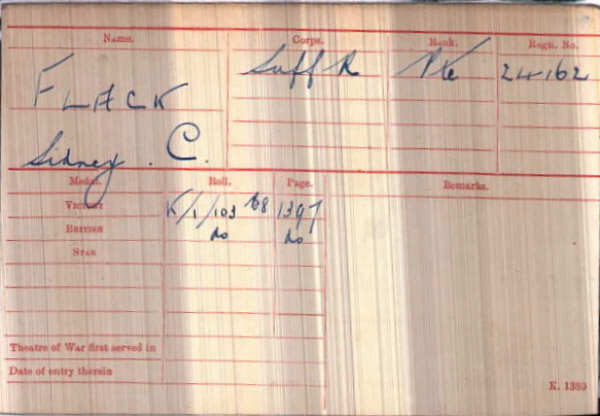 Name. Corps. Rank. Regtl. No.
FLACK Suff R Pte 24162
Sidney . C.
Medal. Roll. Page. Remarks.
VICTORY K/1/103 B8 1397
BRITISH do do
STAR
Theatre of War first served in
Date of entry therein
K. 1380